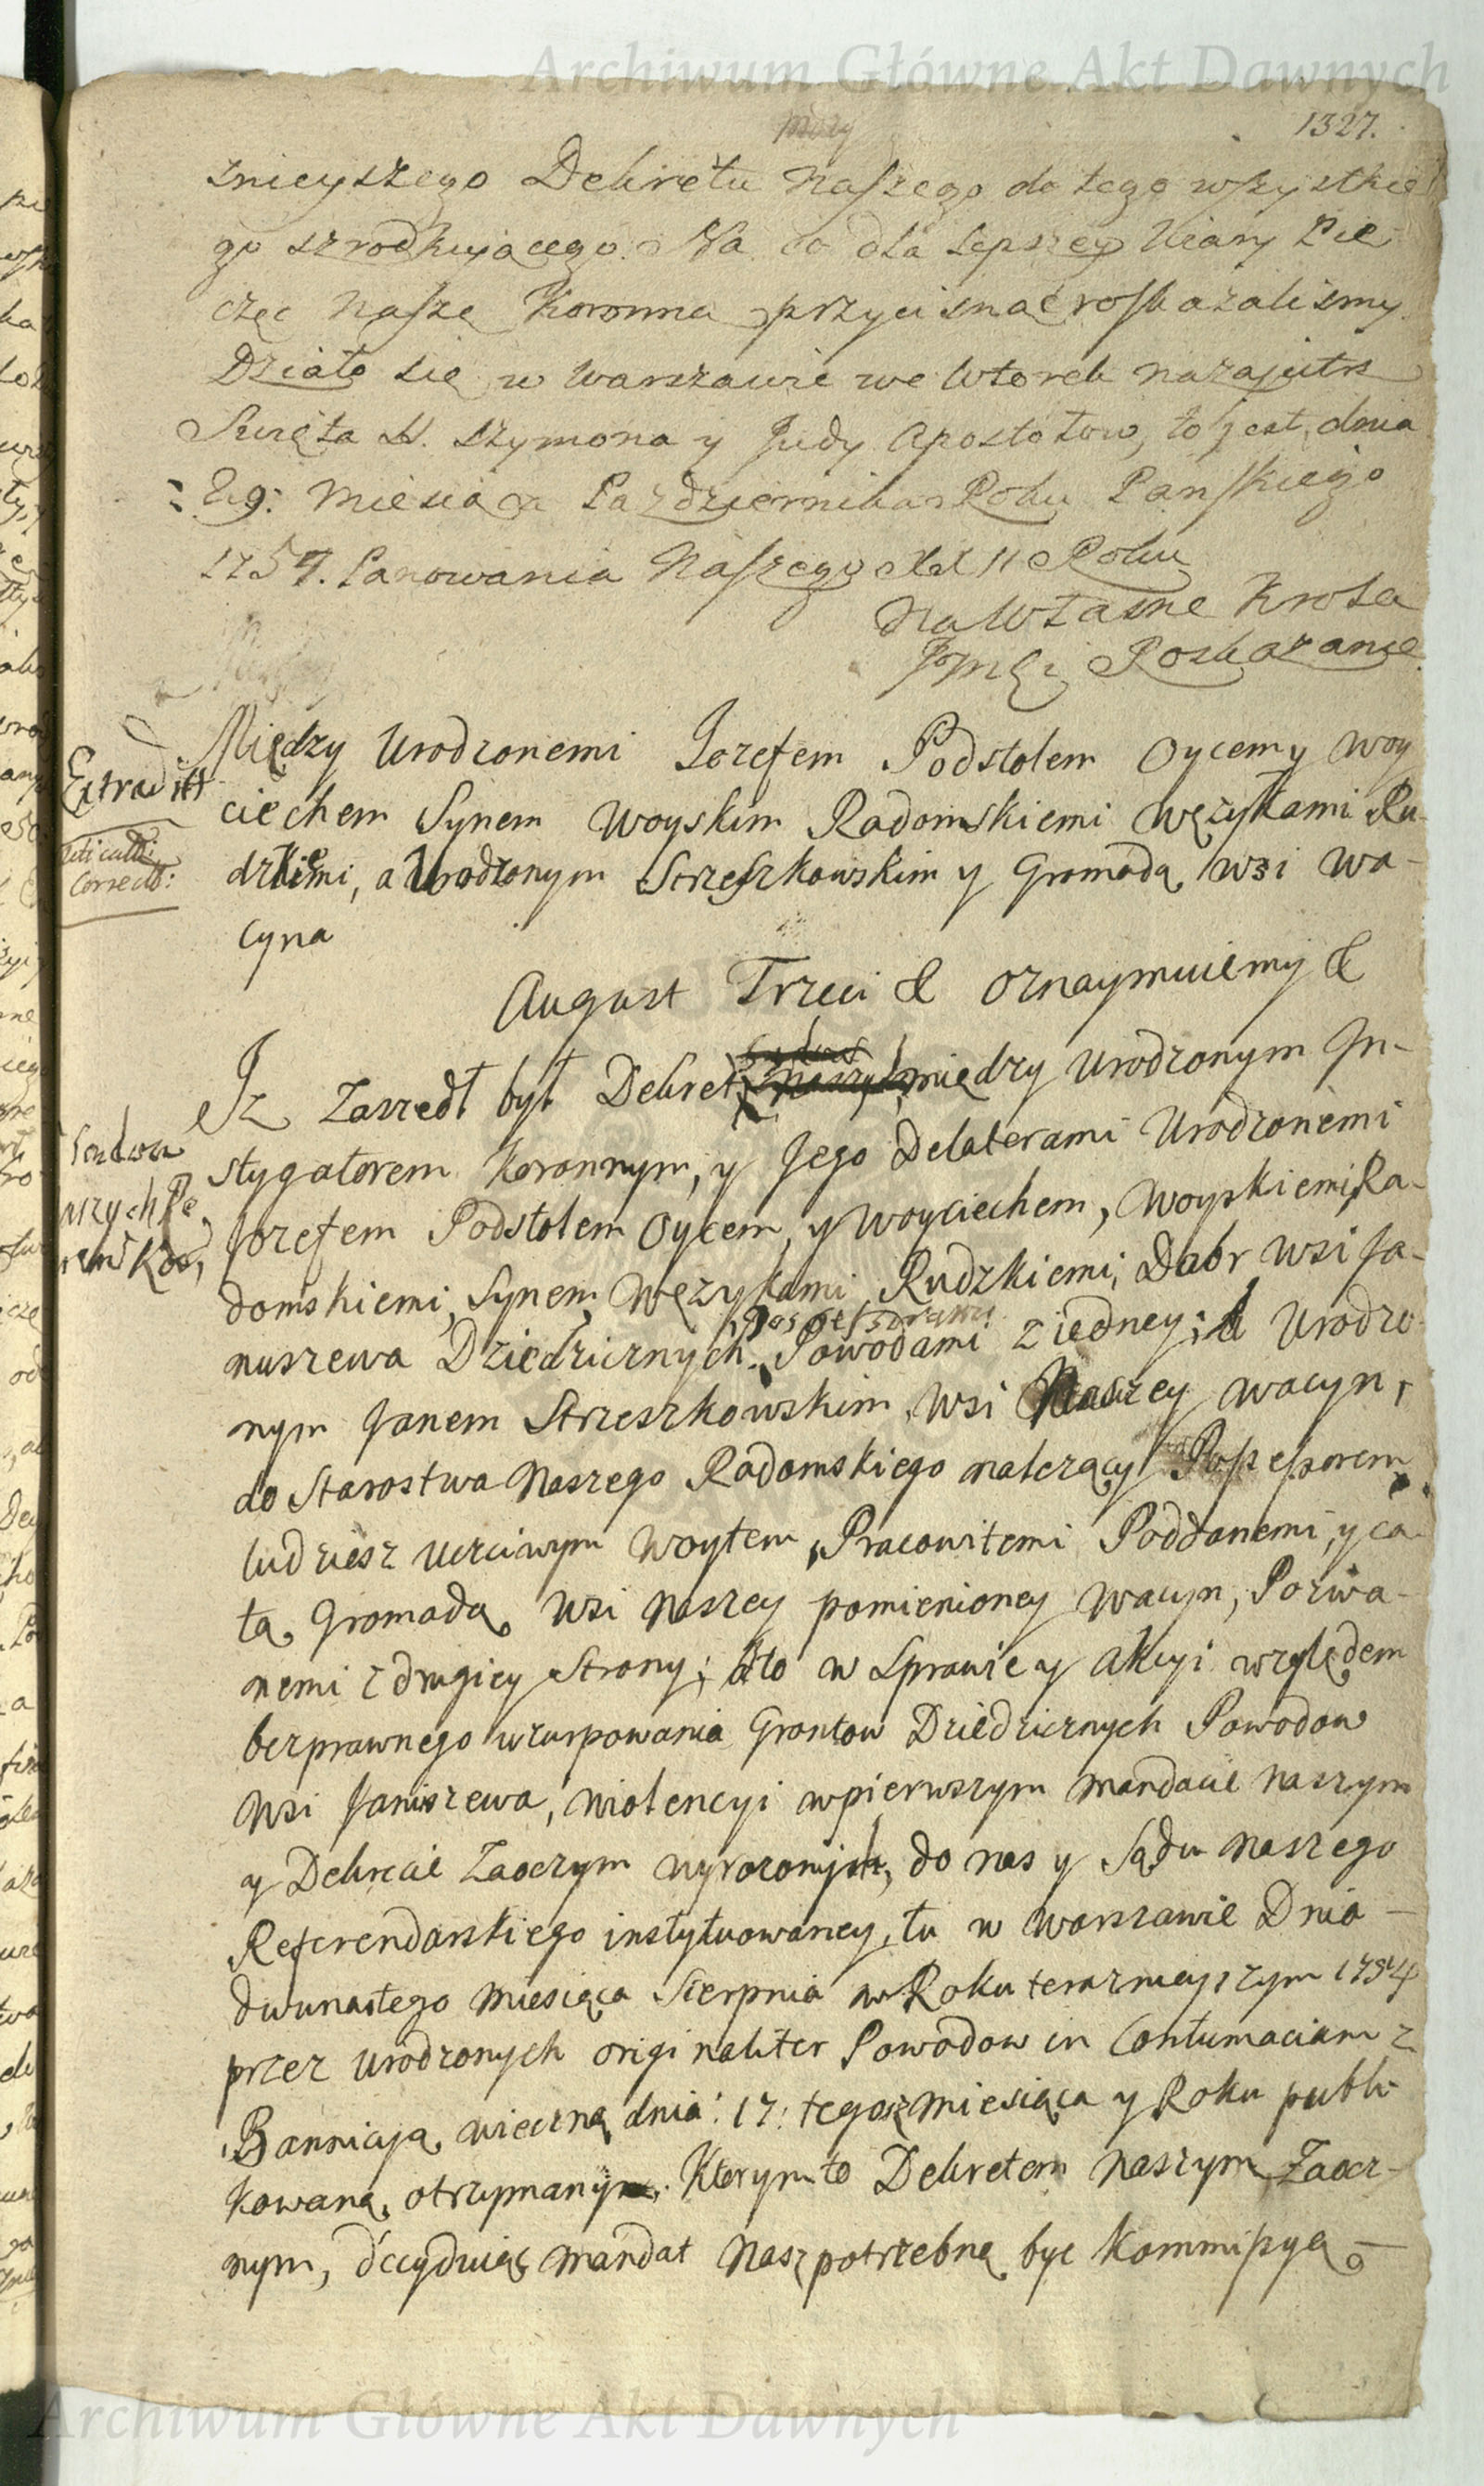 Archiwum Główne Akt Dawnych
1327.
znieyszego Dekretu Naszego do tego wszystkie
go szrodkującego. Na co dla lepszey wiary Pie
częc Naszę Koronną przycisnąć roskazalismy.
Działo się w Warszawie we Wtorek nazajutrz
Swięta SS. Szymona y Judy Apostołow, to jest, dnia
29. Miesiąca Pazdziernika Roku Panskiego
1754. Panowania Naszego XXII Roku
Na Własne Krola
Jmci Roskazanie.
Extraditt
Correct:
Między Urodzonemi Jozefem Podstolem Oycem y Woy
ciechem Synem Woyskim Radomskiemi Węzykami Ru-
dzkiemi, a Urodzonym Strzeszkowskim y Gromadą wsi Wa-
cyna
August Trzeci & Oznaymuiemy &
Jz Zaszedł był Dekret między Urodzonym In-
stygatorem Koronnym, y Jego Delatorami Urodzonemi
Jozefem Podstolem Oycem, y Woyciechem, Woyskiemi Ra-
domskiemi, Synem Węzykami Rudzkiemi, Dobr wsi Ja-
nuszewa Dziedzicznych Possessorami Powodami z iedney; a Urodzo-
nym Janem Strzeszkowskim, wsi Naszey Wacyn,
do Starostwa Naszego Radomskiego nalezący Possessorem
tudziesz Uczciwym Woytem, Pracowitemi Poddanemi, y ca
łą Gromadą wsi Naszey pomienioney Wacyn, Pozwa-
nemi z drugiey Strony; a to w Sprawie y Akcyi względem
bezprawnego uzurpowania Grontow Dziedzicznych Powodow
wsi Januszewa, wiolencyi w pierwszym Mandacie Naszym
y Dekrecie Zaocznym wyrozonych, do nas y Sądu Naszego
Referendarskiego instytuowaney, tu w Warszawie Dnia
dwunastego Miesiąca Sierpnia w Roku teraznieyszym 1754
przez Urodzonych originaliter Powodow in Contumaciam z
Bannicyą wieczną dnia: 17: tegosz Miesiąca y Roku publi
kowaną, otrzymany. Ktorym to Dekretem Naszym Zaocz-
nym, decyduiąc Mandat Nasz potrzebną byc Kommissyą
Archiwum Główne Akt Dawnych